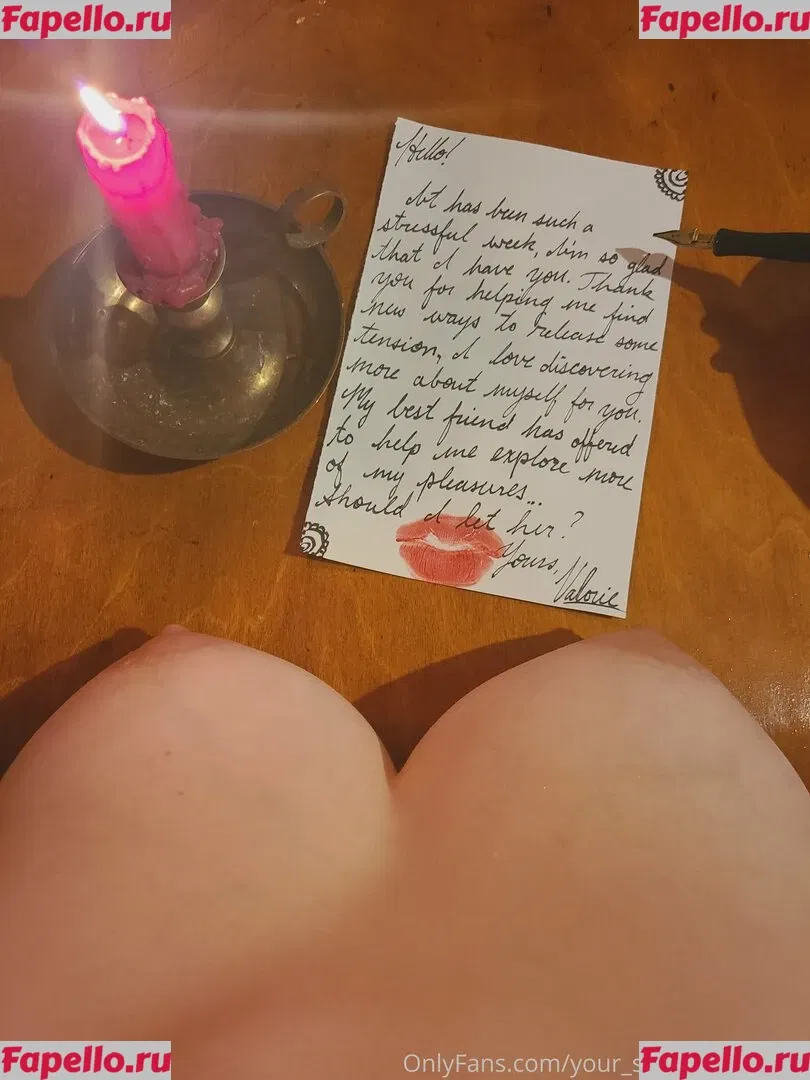 Fapello.ru
Fapello.ru
Hello!
It has been such a
stressful week, I'm so glad
that I have you. Thank
you for helping me find
new ways to release some
tension, I love discovering
more about myself for you.
My best friend has offered
to help me explore more
of my pleasures...
Should I let her?
Yours,
Valorie
Fapello.ru
OnlyFans.com/your_s
Fapello.ru